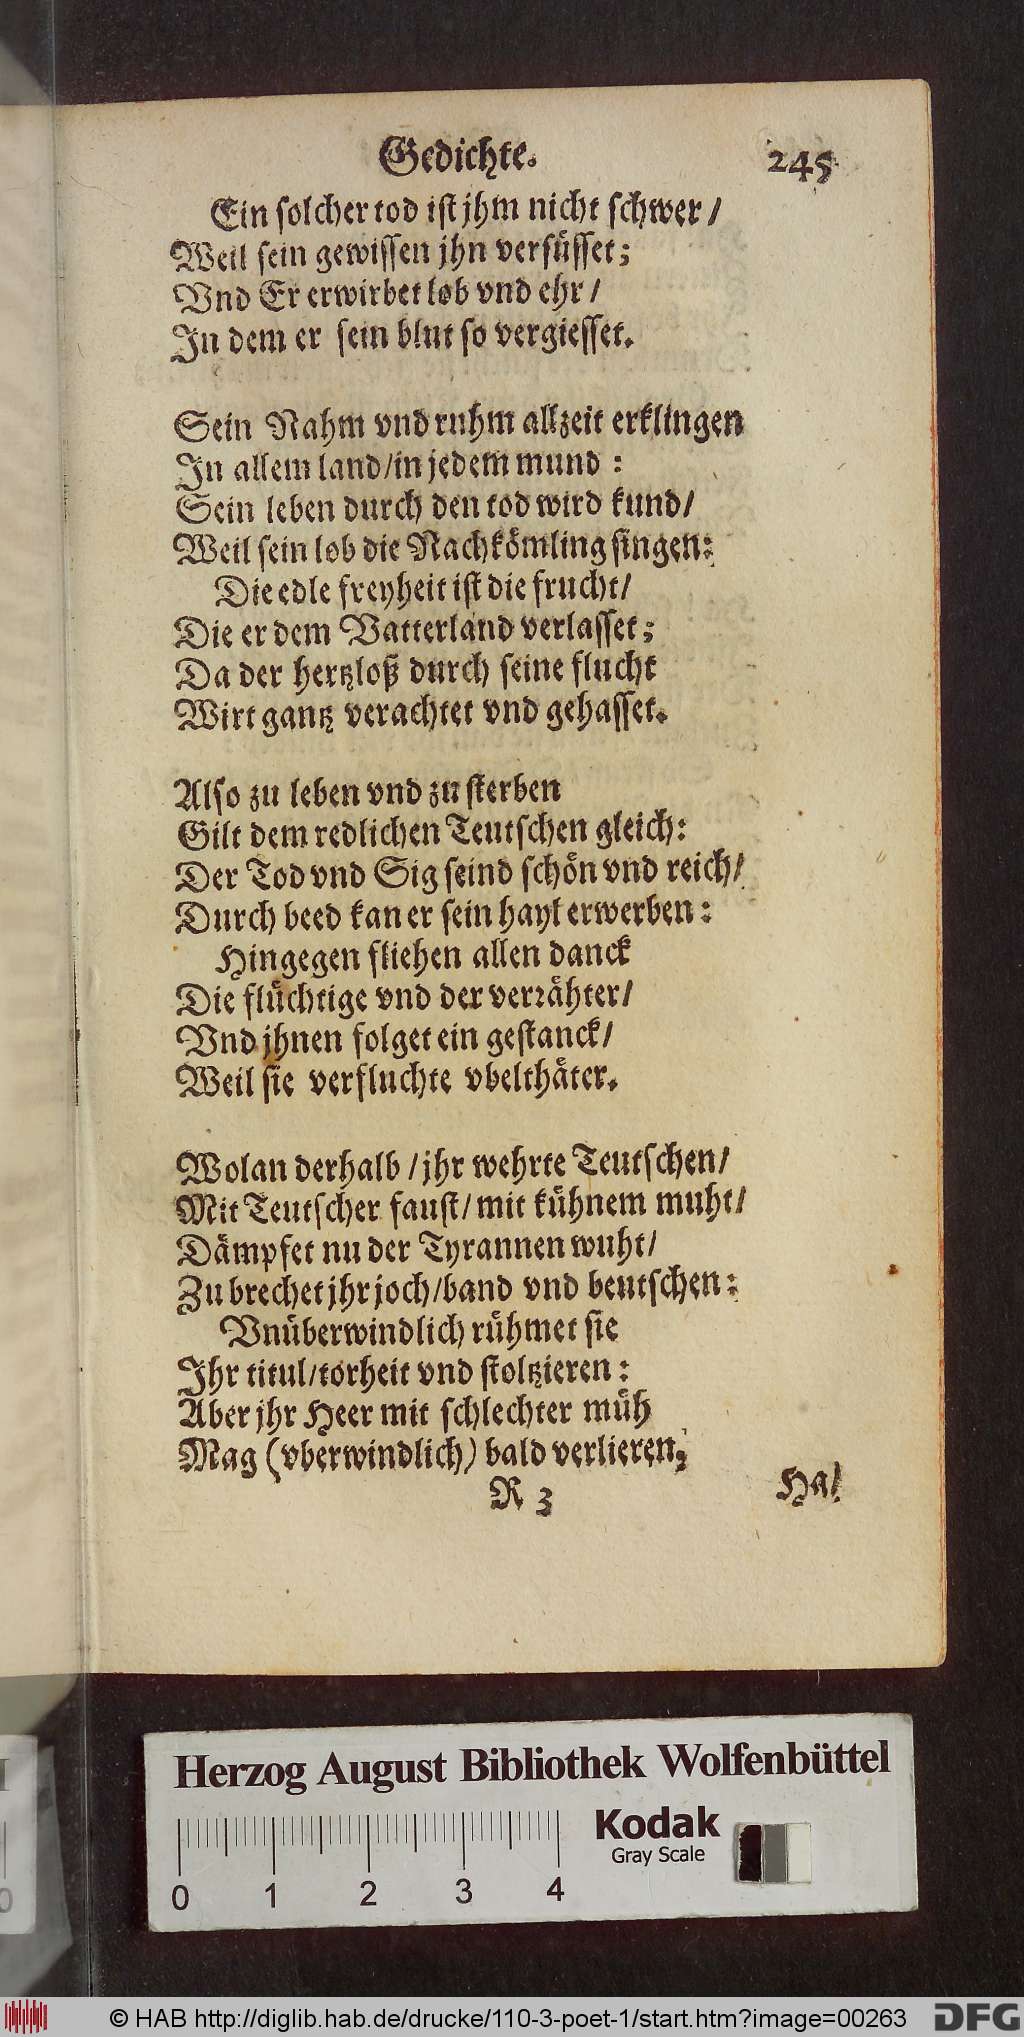 Gedichte. 245
Ein solcher tod ist jhm nicht schwer/
Weil sein gewissen jhn versüsset;
Vnd Er erwirbet lob vnd ehr/
In dem er sein blut so vergiesset.
Sein Nahm vnd ruhm allzeit erklingen
In allem land/in jedem mund:
Sein leben durch den tod wird kund/
Weil sein lob die Nachkömling singen:
Die edle freyheit ist die frucht/
Die er dem Vatterland verlasset;
Da der hertzloß durch seine flucht
Wirt gantz verachtet vnd gehasset.
Also zu leben vnd zu sterben
Gilt dem redlichen Teutschen gleich:
Der Tod vnd Sig seind schön vnd reich/
Durch beed kan er sein hayl erwerben:
Hingegen fliehen allen danck
Die flüchtige vnd der verrähter/
Vnd jhnen folget ein gestanck/
Weil sie verfluchte vbelthäter.
Wolan derhalb/jhr wehrte Teutschen/
Mit Teutscher faust/mit kühnem muht/
Dämpfet nu der Tyrannen wuht/
Zu brechet jhr joch/band vnd beutschen:
Vnüberwindlich rühmet sie
Ihr titul/torheit vnd stoltzieren:
Aber jhr Heer mit schlechter müh
Mag (vberwindlich) bald verlieren;
R 3 Ha/
Herzog August Bibliothek Wolfenbüttel
Kodak
Gray Scale
0 1 2 3 4
© HAB http://diglib.hab.de/drucke/110-3-poet-1/start.htm?image=00263 DFG